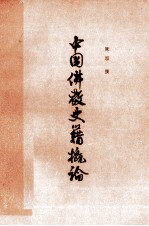 陳垣撰
中国佛教史籍概論